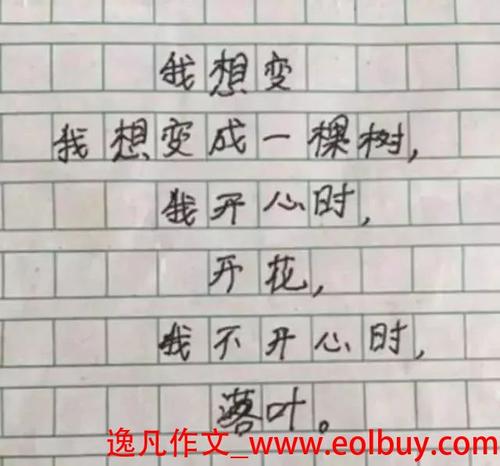 我想变
我想变成一棵树，
我开心时，
开花，
我不开心时，
落叶。
逸凡作文_www.eolbuy.com